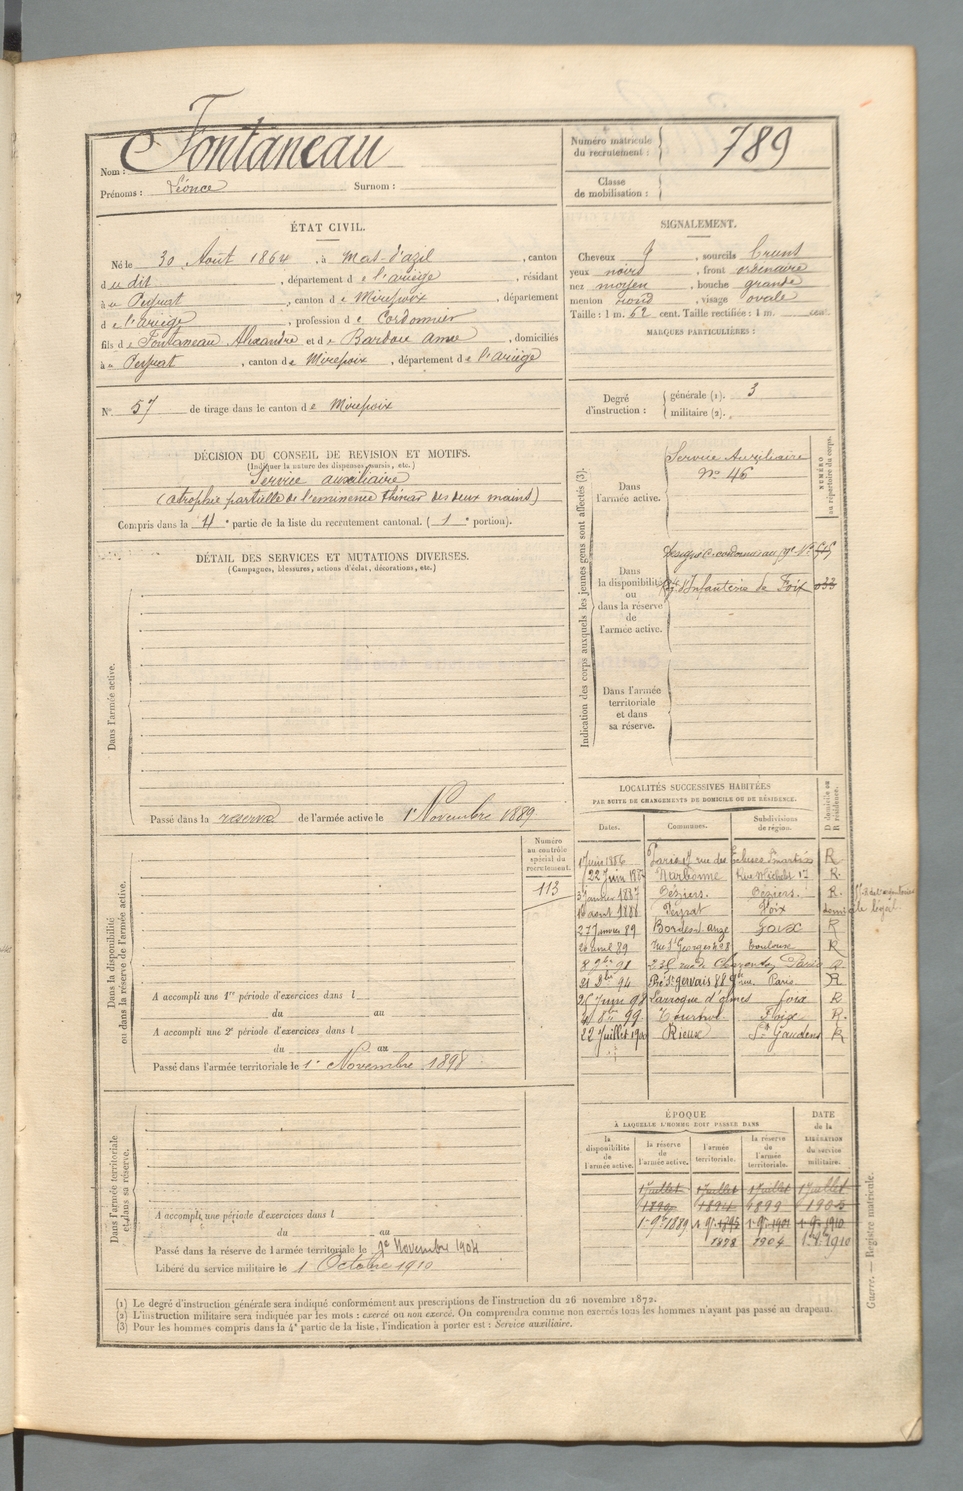 Nom : Fontaneau
Prénoms : Léonce Surnom :
Numéro matricule du recrutement : 789
Classe de mobilisation :
ÉTAT CIVIL.
Né le 30 Août 1864, à Mas-d'azil, canton
d u dit, département d e l'ariège, résidant
à Peyrat, canton d e Mirepoix, département
d e l'ariège, profession d e Cordonnier
fils d e Fontaneau Alexandre et d e Bardou anne, domiciliés
à Peyrat, canton d e Mirepoix, département d e l'ariège
N° 57 de tirage dans le canton d e Mirepoix
SIGNALEMENT.
Cheveux , sourcils brunt
yeux noirs, front ordinaire
nez moyen, bouche grande
menton rond, visage ovale
Taille : 1 m. 62 cent. Taille rectifiée : 1 m. cent.
MARQUES PARTICULIÈRES :
Degré d'instruction : générale (1). 3
militaire (2).
DÉCISION DU CONSEIL DE REVISION ET MOTIFS.
(Indiquer la nature des dispenses, sursis, etc.)
Service auxiliaire
(atrophie partielle de l'eminence thinar des deux mains)
Compris dans la 4e partie de la liste du recrutement cantonal. (1e portion).
DÉTAIL DES SERVICES ET MUTATIONS DIVERSES.
(Campagnes, blessures, actions d'éclat, décorations, etc.)
Dans l'armée active.
Passé dans la réserve de l'armée active le 1er Novembre 1889
Indication des corps auxquels les jeunes gens sont affectés (3).
NUMÉRO au répertoire du corps.
Dans l'armée active.
Service Auxiliaire
N° 46
Dans la disponibilité ou dans la réserve de l'armée active.
d'Infanterie de Foix
Dans l'armée territoriale et dans sa réserve.
LOCALITÉS SUCCESSIVES HABITÉES
PAR SUITE DE CHANGEMENTS DE DOMICILE OU DE RÉSIDENCE.
Dates. Communes. Subdivisions de région. D domicile ou R résidence.
Juin 1886 Paris rue des Ecluses St martin R
22 Juin 1887 Narbonne Rue Michelet 17 R.
3 janvier 1887 Béziers. Béziers. R.
août 1888 Peyrat Foix
27 Janvier 89 Bordes s. arize Foix R
avril 89 rue St Georges n° 8 Toulouse R
8 9bre 91 238 rue de Charenton Paris R
21 Xbre 94 Pré St gervais 88 gde rue. Paris R
25 Juin 98 Larroque d'olmes foix R
8bre 99 Foix R.
22 Juillet 1900 Rieux St Gaudens R
Dans la disponibilité ou dans la réserve de l'armée active.
Numéro au contrôle spécial du recrutement.
113
A accompli une 1re période d'exercices dans l
du au
A accompli une 2e période d'exercices dans l
du au
Passé dans l'armée territoriale le 1er Novembre 1898
Dans l'armée territoriale et dans sa réserve.
A accompli une période d'exercices dans l
du au
Passé dans la réserve de l'armée territoriale le 1er Novembre 1904
Libéré du service militaire le 1er Octobre 1910
ÉPOQUE
À LAQUELLE L'HOMME DOIT PASSER DANS
DATE de la LIBÉRATION du service militaire.
la disponibilité de l'armée active. la réserve de l'armée active. l'armée territoriale. la réserve de l'armée territoriale.
1er juillet 1er juillet 1er juillet 1er juillet
1894 1899 1905
1er 9bre 1889 1er 9bre 1er 9bre 1901 1er 9bre 1910
1898 1904 1910
(1) Le degré d'instruction générale sera indiqué conformément aux prescriptions de l'instruction du 26 novembre 1872.
(2) L'instruction militaire sera indiquée par les mots : exercé ou non exercé. On comprendra comme non exercés tous les hommes n'ayant pas passé au drapeau.
(3) Pour les hommes compris dans la 4e partie de la liste, l'indication à porter est : Service auxiliaire.
Guerre. — Registre matricule.